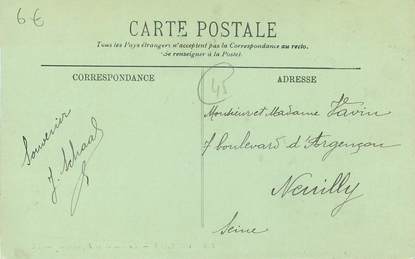 6€
CARTE POSTALE
Tous les Pays étrangers n'acceptent pas la Correspondance au recto.
(Se renseigner à la Poste).
CORRESPONDANCE
ADRESSE
45
Souvenir
J. Schaal
Monsieur et Madame Vavin
7 boulevard d'Argençon
Neuilly
Seine